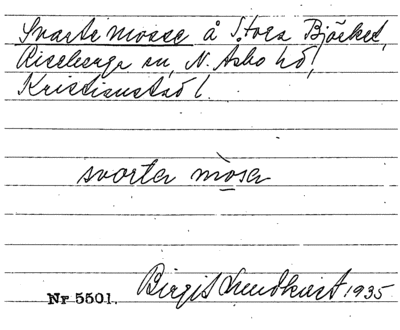 Svarte mosse å Stora Bjärket,
Riseberga sn, N. Asbo hd,
Kristianstad l.
svarta mòsa
Nr 5501. Birgit Lundkvist 1935